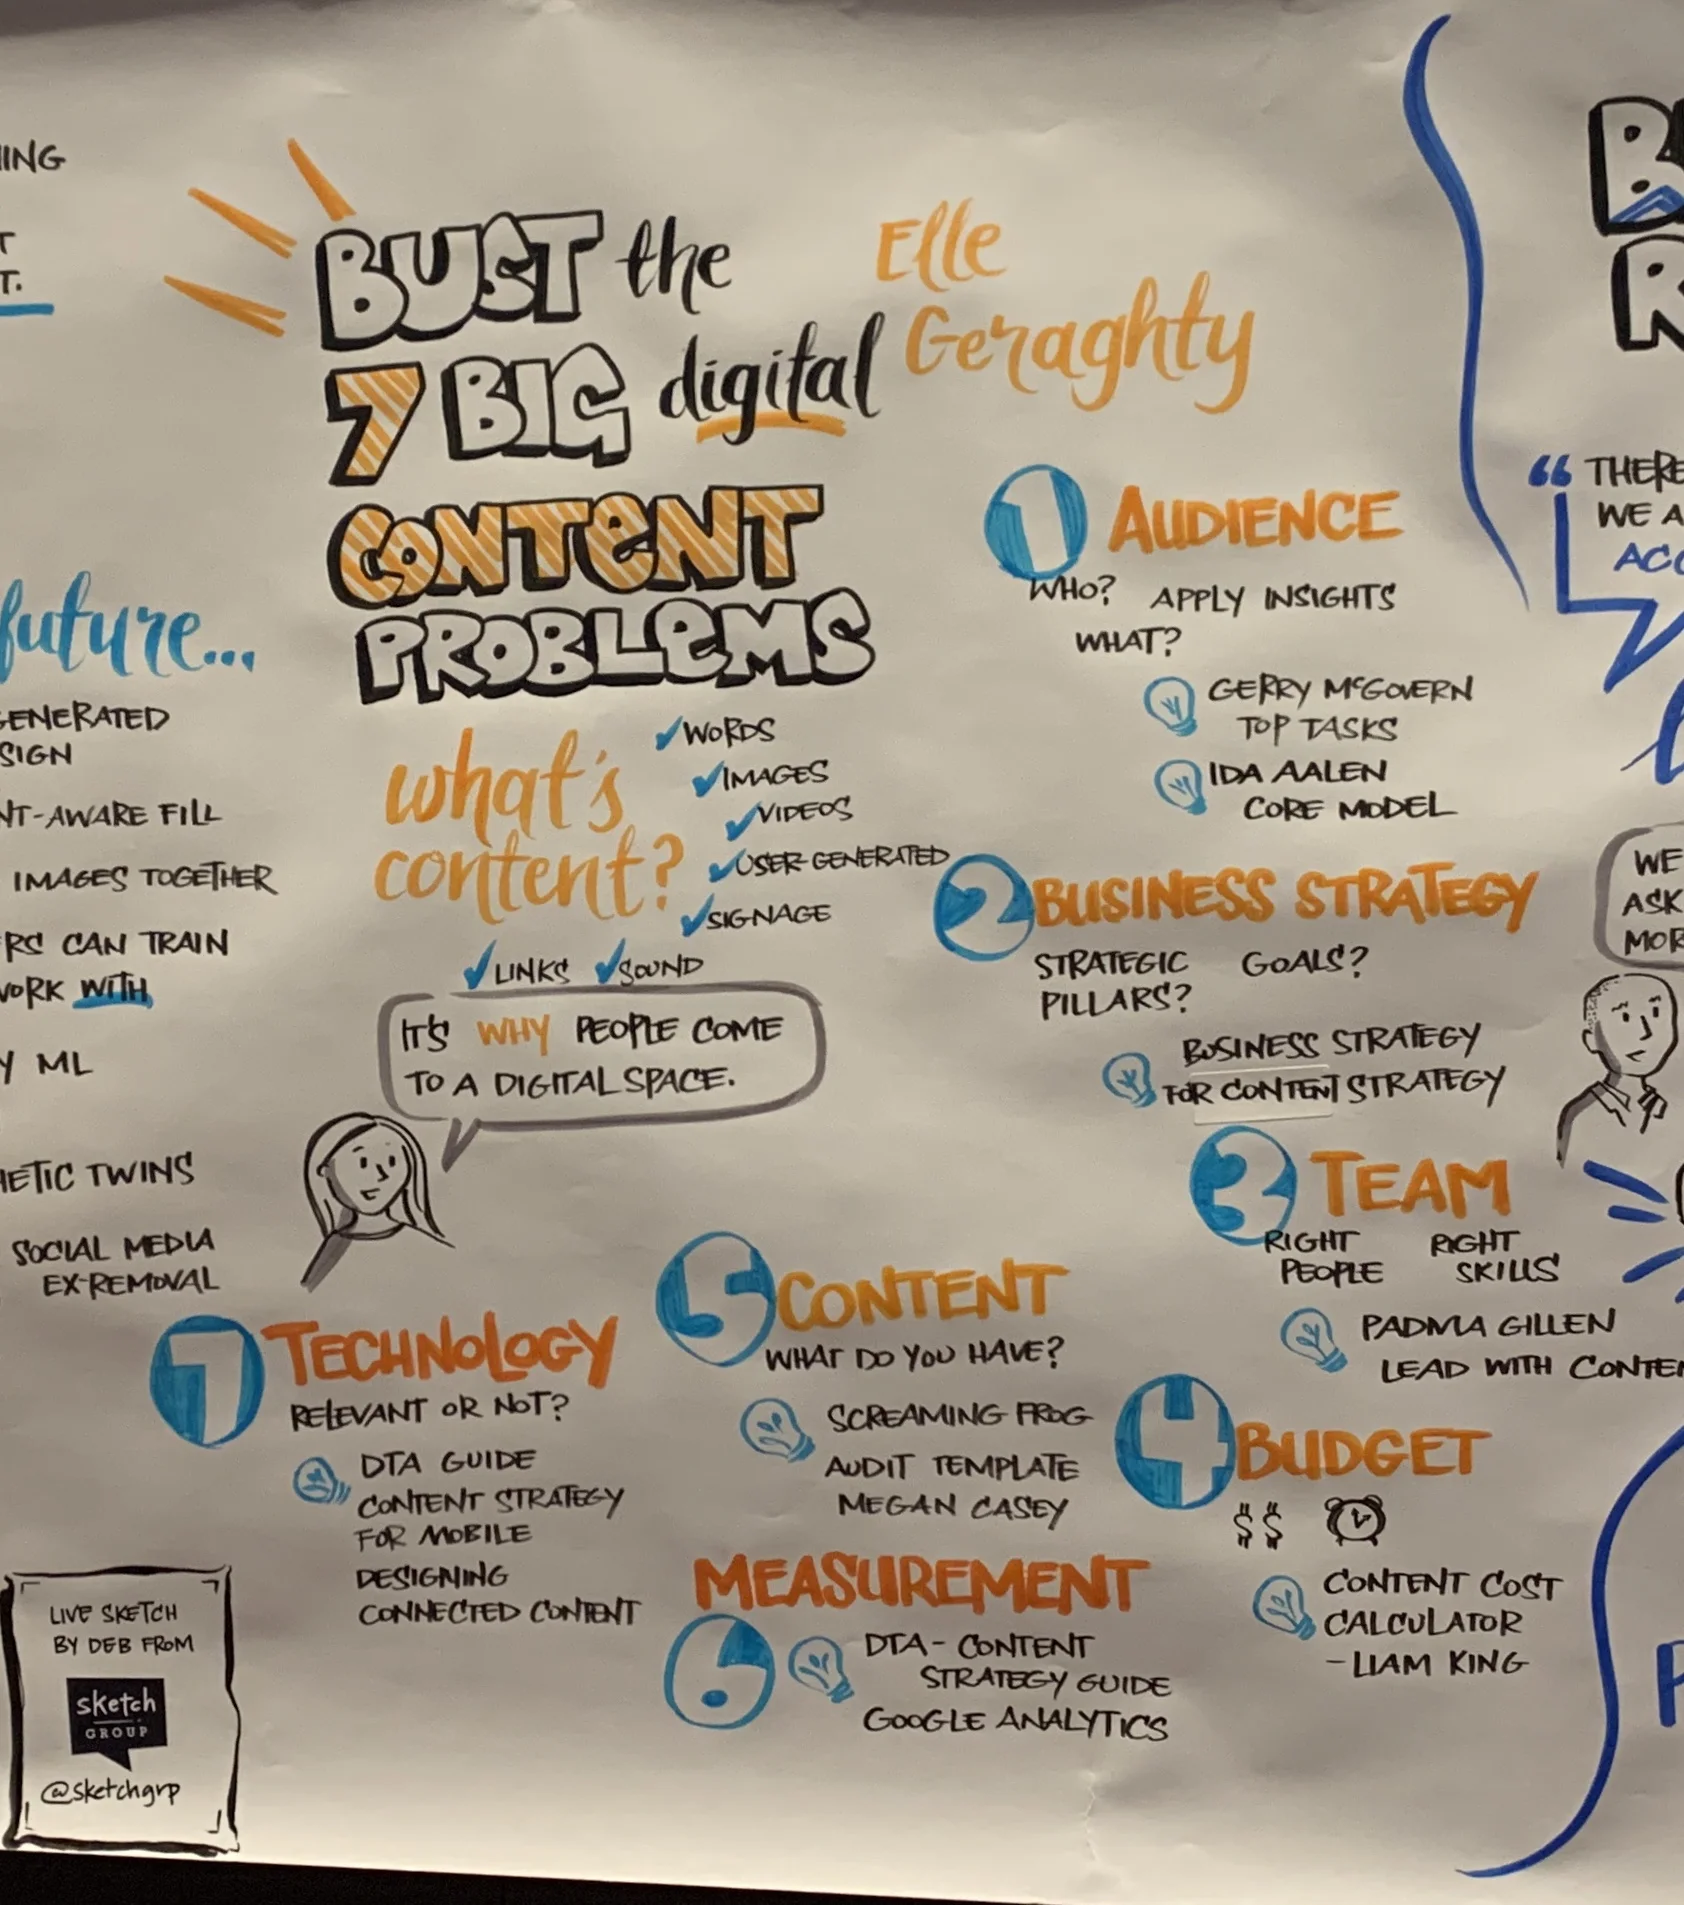 BUST the
7 BIG digital
CONTENT
PROBLEMS
Elle
Geraghty
what's
content?
WORDS
IMAGES
VIDEOS
USER-GENERATED
SIGNAGE
LINKS SOUND
IT'S WHY PEOPLE COME
TO A DIGITAL SPACE.
1 AUDIENCE
WHO? APPLY INSIGHTS
WHAT?
GERRY McGOVERN
TOP TASKS
IDA AALEN
CORE MODEL
2 BUSINESS STRATEGY
STRATEGIC GOALS?
PILLARS?
BUSINESS STRATEGY
FOR CONTENT STRATEGY
3 TEAM
RIGHT RIGHT
PEOPLE SKILLS
PADMA GILLEN
LEAD WITH
4 BUDGET
$$
CONTENT COST
CALCULATOR
- LIAM KING
5 CONTENT
WHAT DO YOU HAVE?
SCREAMING FROG
AUDIT TEMPLATE
MEGAN CASEY
MEASUREMENT
6
DTA - CONTENT
STRATEGY GUIDE
GOOGLE ANALYTICS
7 TECHNOLOGY
RELEVANT OR NOT?
DTA GUIDE
CONTENT STRATEGY
FOR MOBILE
DESIGNING
CONNECTED CONTENT
future...
-AWARE FILL
IMAGES TOGETHER
CAN TRAIN
WITH
ML
TWINS
SOCIAL MEDIA
EX-REMOVAL
LIVE SKETCH
BY DEB FROM
sketch
GROUP
@sketchgrp
“ THERE
WE
WE
ASK